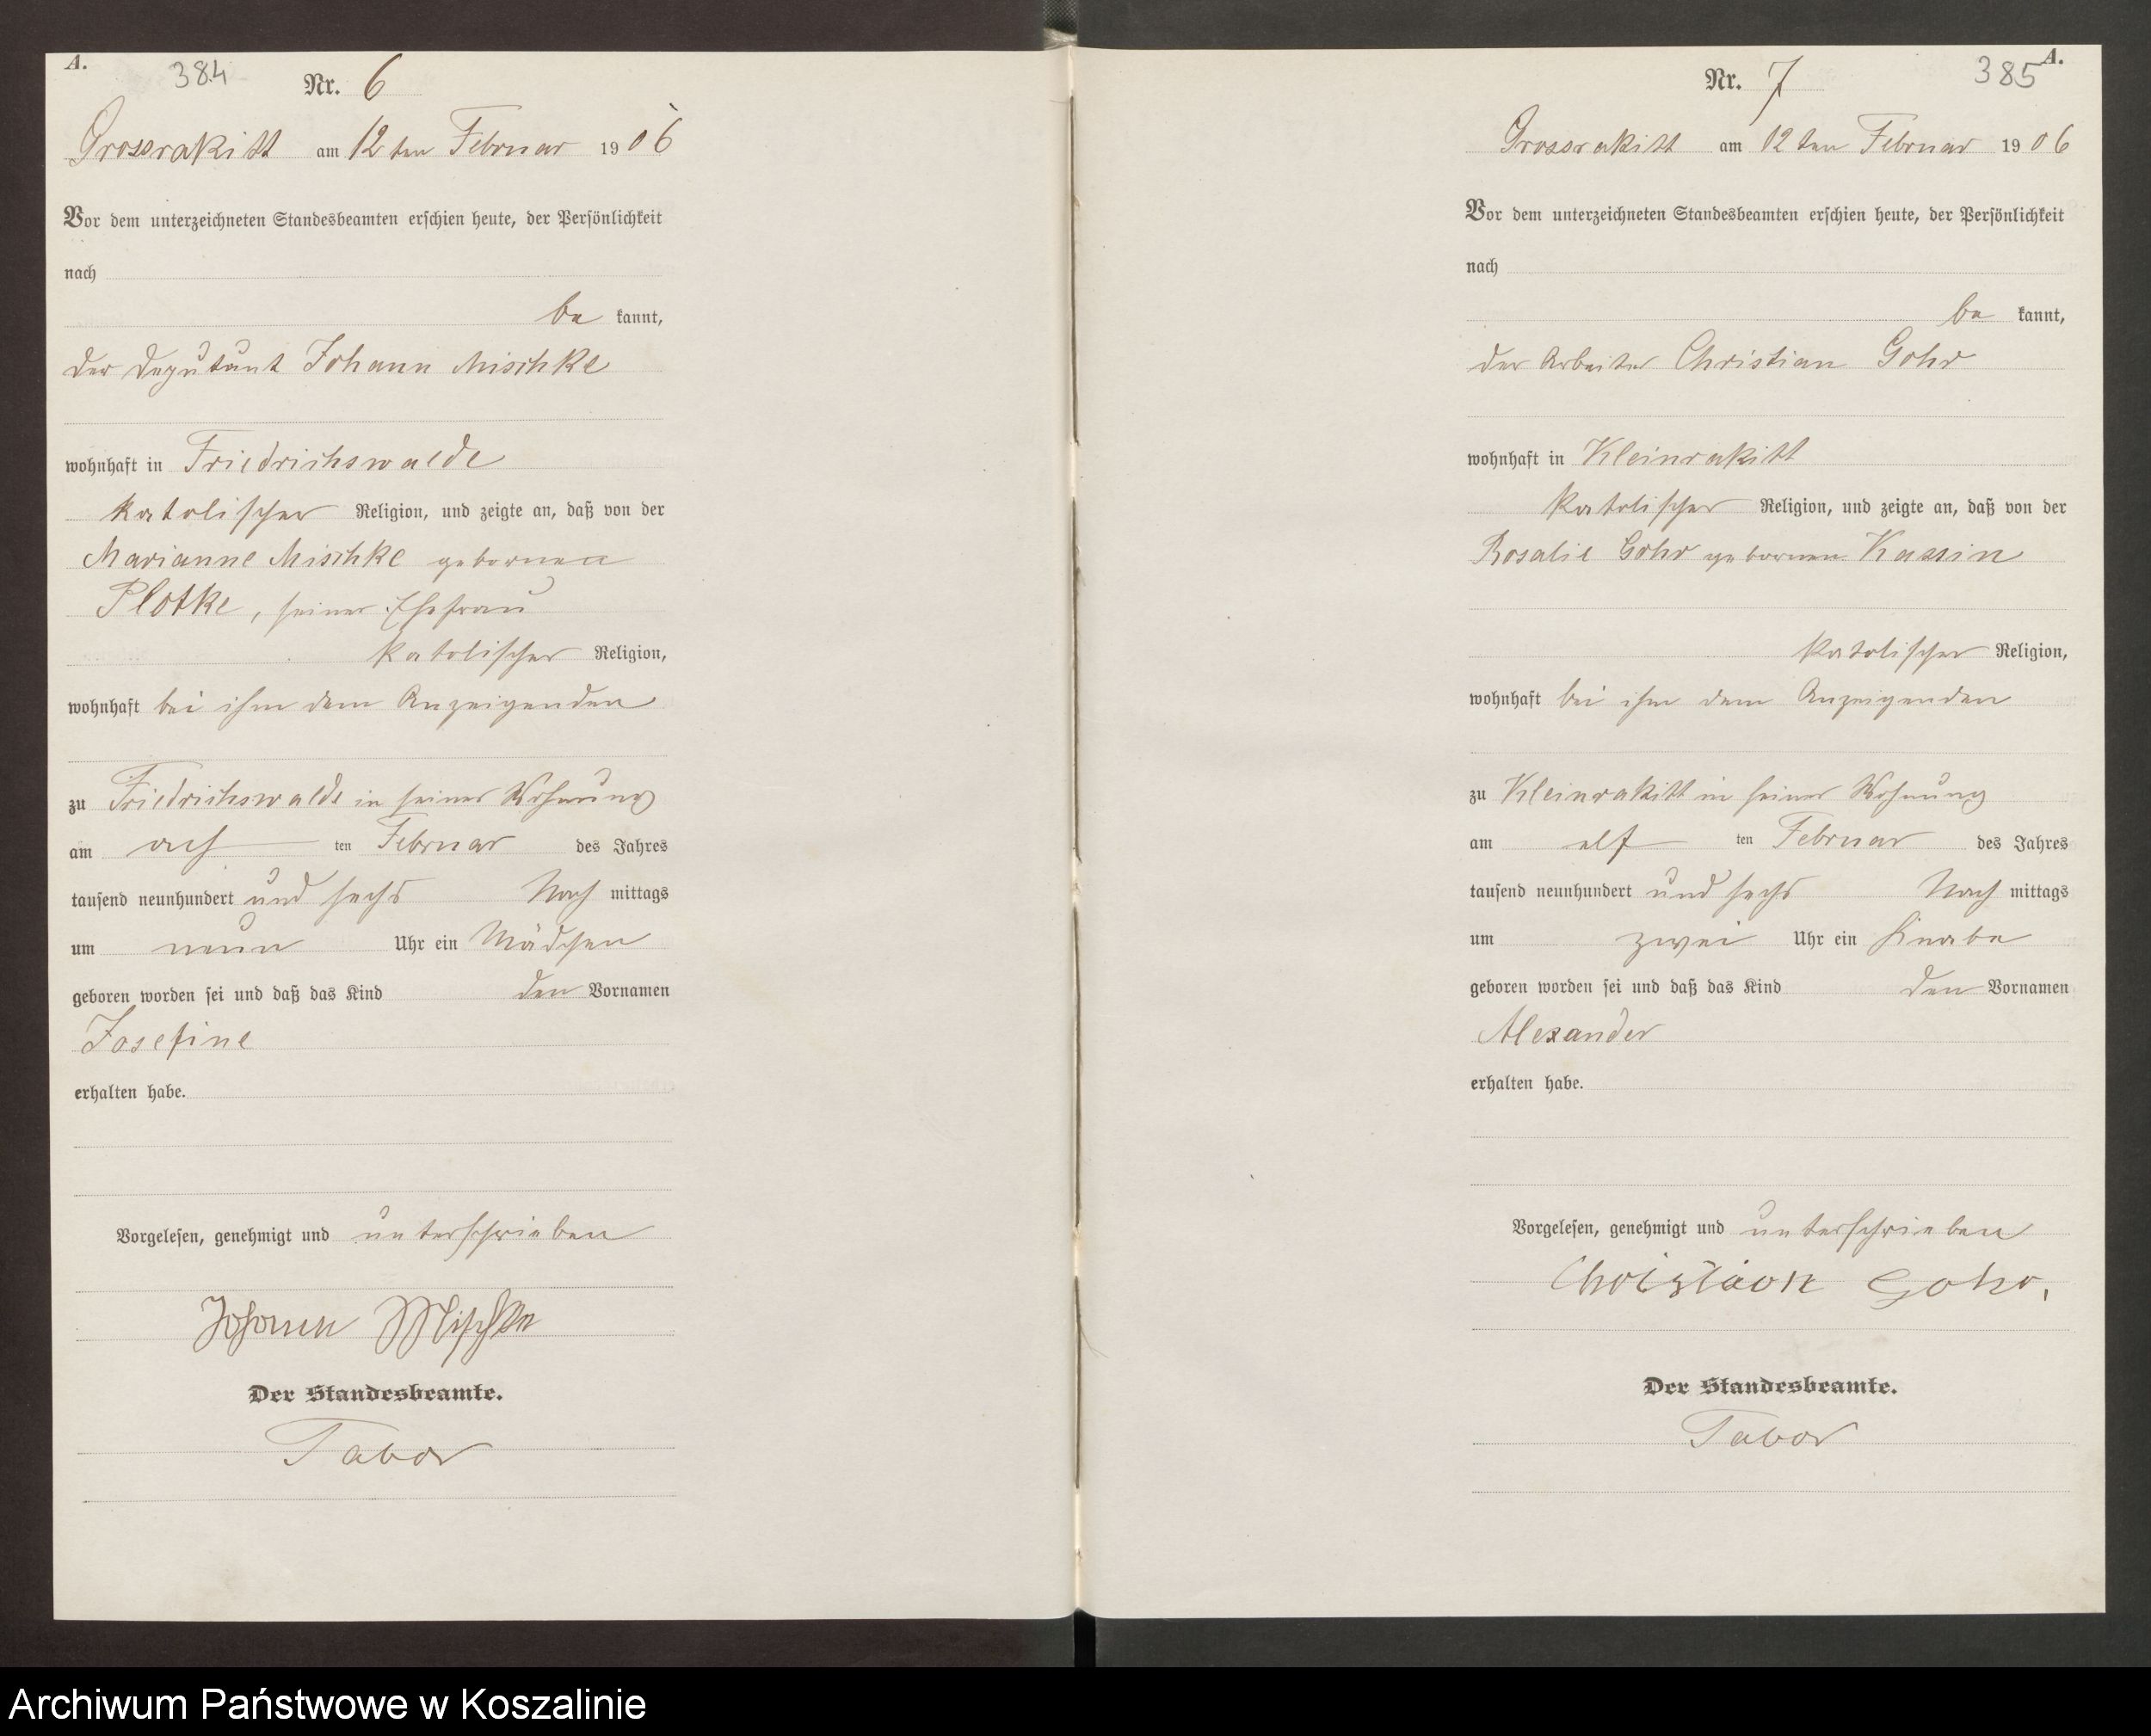 A.
384
Nr. 6
Grossrakitt am 12 ten Februar 1906
Vor dem unterzeichneten Standesbeamten erschien heute, der Persönlichkeit
nach
be kannt,
der Deputant Johann Mischke
wohnhaft in Friedrichswalde
katolischer Religion, und zeigte an, daß von der
Marianne Mischke gebornen
Plotke, seiner Ehefrau
katolischer Religion,
wohnhaft bei ihm dem Anzeigenden
zu Friedrichswalde in seiner Wohnung
am ach ten Februar des Jahres
tausend neunhundert und sechs Nach mittags
um neun Uhr ein Mädchen
geboren worden sei und daß das Kind den Vornamen
Josefine
erhalten habe.
Vorgelesen, genehmigt und unterschrieben
Johann Mischke
Der Standesbeamte.
Tabor
A.
385
Nr. 7
Grossrakitt am 12 ten Februar 1906
Vor dem unterzeichneten Standesbeamten erschien heute, der Persönlichkeit
nach
be kannt,
der Arbeiter Christian Gohr
wohnhaft in Kleinrakitt
katolischer Religion, und zeigte an, daß von der
Rosalie Gohr gebornen Kassin
katolischer Religion,
wohnhaft bei ihm dem Anzeigenden
zu Kleinrakitt in seiner Wohnung
am elf ten Februar des Jahres
tausend neunhundert und sechs Nach mittags
um zwei Uhr ein Knabe
geboren worden sei und daß das Kind den Vornamen
Alexander
erhalten habe.
Vorgelesen, genehmigt und unterschrieben
Christian Gohr,
Der Standesbeamte.
Tabor
Archiwum Państwowe w Koszalinie